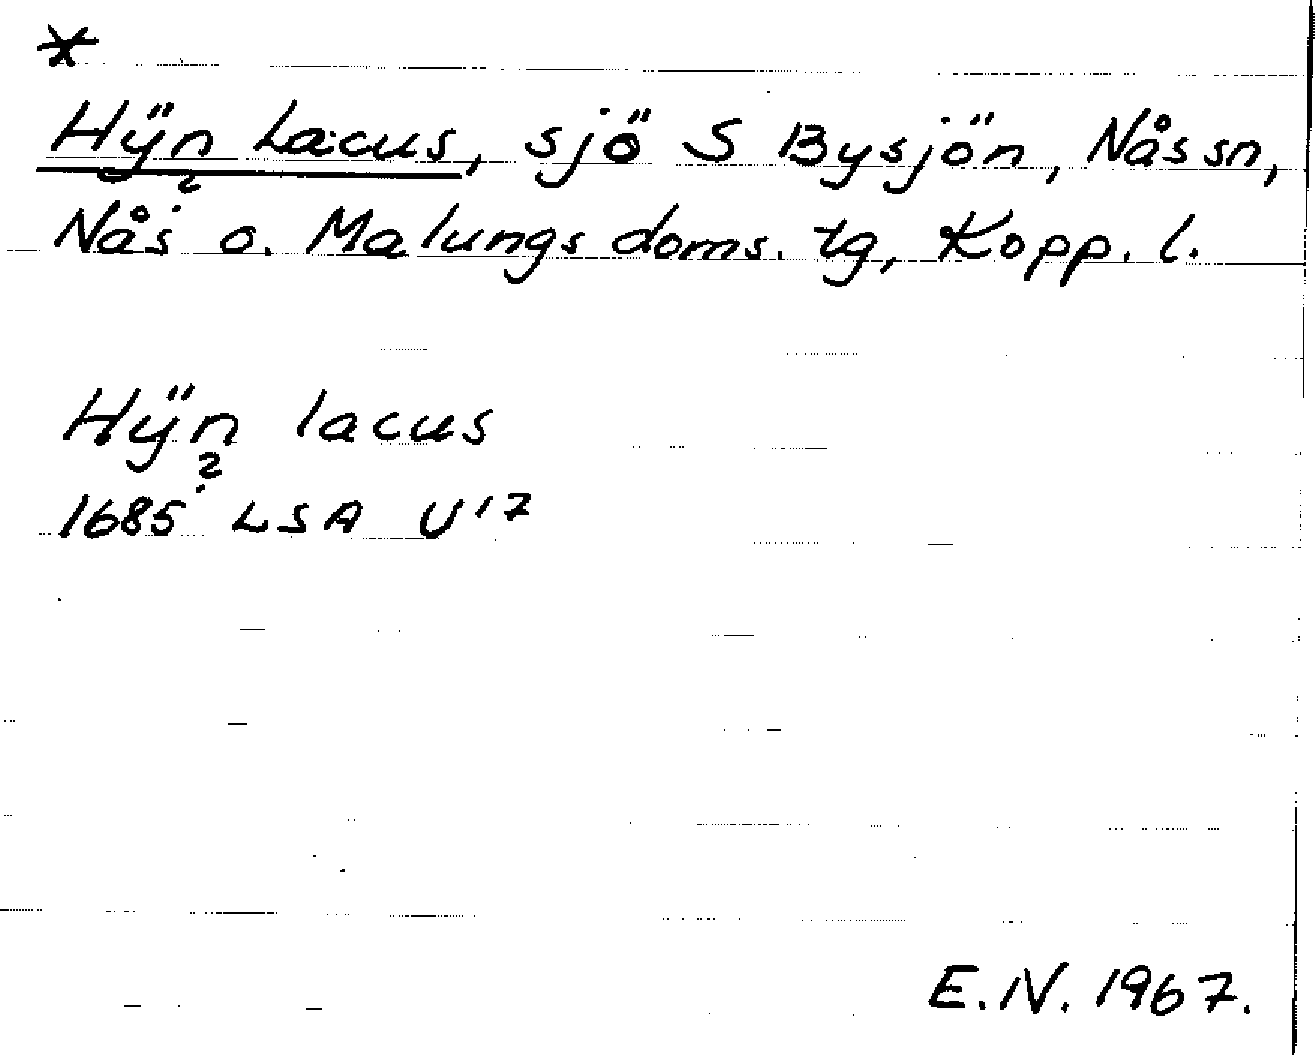 *
Hÿn Lacus, sjö S Bysjön, Nås sn,
?
Nås o. Malungs doms. tg, Kopp. l.
Hÿn lacus
?
1685 LSA U17
E.N. 1967.